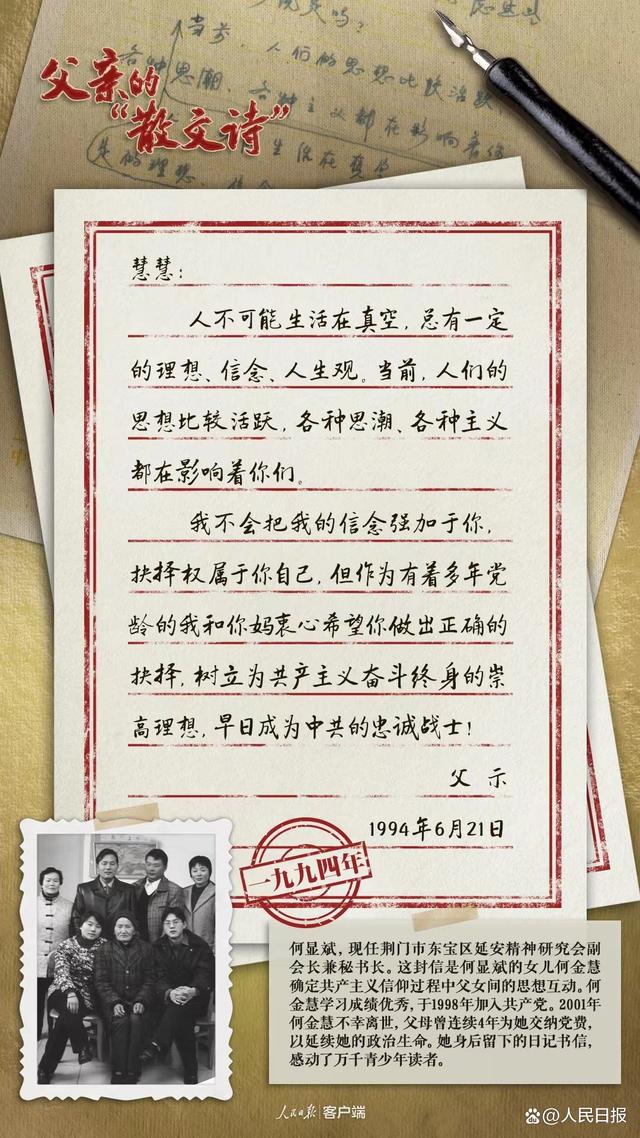 当前，人们的思想比较活跃，
各种思潮、各种主义都在影响着你
是的理想、信念
生活在真空
父亲的
“散文诗”
慧慧：
人不可能生活在真空，总有一定
的理想、信念、人生观。当前，人们的
思想比较活跃，各种思潮、各种主义
都在影响着你们。
我不会把我的信念强加于你，
抉择权属于你自己，但作为有着多年党
龄的我和你妈衷心希望你做出正确的
抉择，树立为共产主义奋斗终身的崇
高理想，早日成为中共的忠诚战士！
父 示
1994年6月21日
一九九四年
何显斌，现任荆门市东宝区延安精神研究会副
会长兼秘书长。这封信是何显斌的女儿何金慧
确定共产主义信仰过程中父女间的思想互动。何
金慧学习成绩优秀，于1998年加入共产党。2001年
何金慧不幸离世，父母曾连续4年为她交纳党费，
以延续她的政治生命。她身后留下的日记书信，
感动了万千青少年读者。
人民日报 客户端
@人民日报